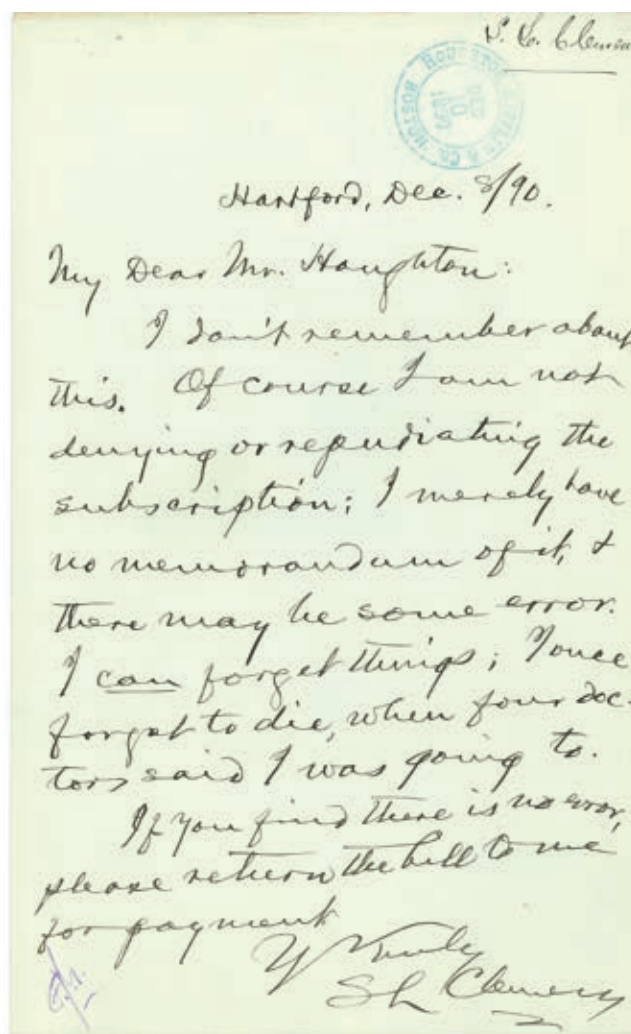 S. L. Clemens
HOUGHTON, MIFFLIN & CO. BOSTON
DEC
10
1890
Hartford, Dec. 8/90.
My Dear Mr. Houghton:
I don't remember about
this. Of course I am not
denying or repudiating the
subscription; I merely have
no memorandum of it, &
there may be some error.
I can forget things; I once
forgot to die, when four doc-
tors said I was going to.
If you find there is no error,
please return the bill to me
for payment
Y Truly
SL Clemens